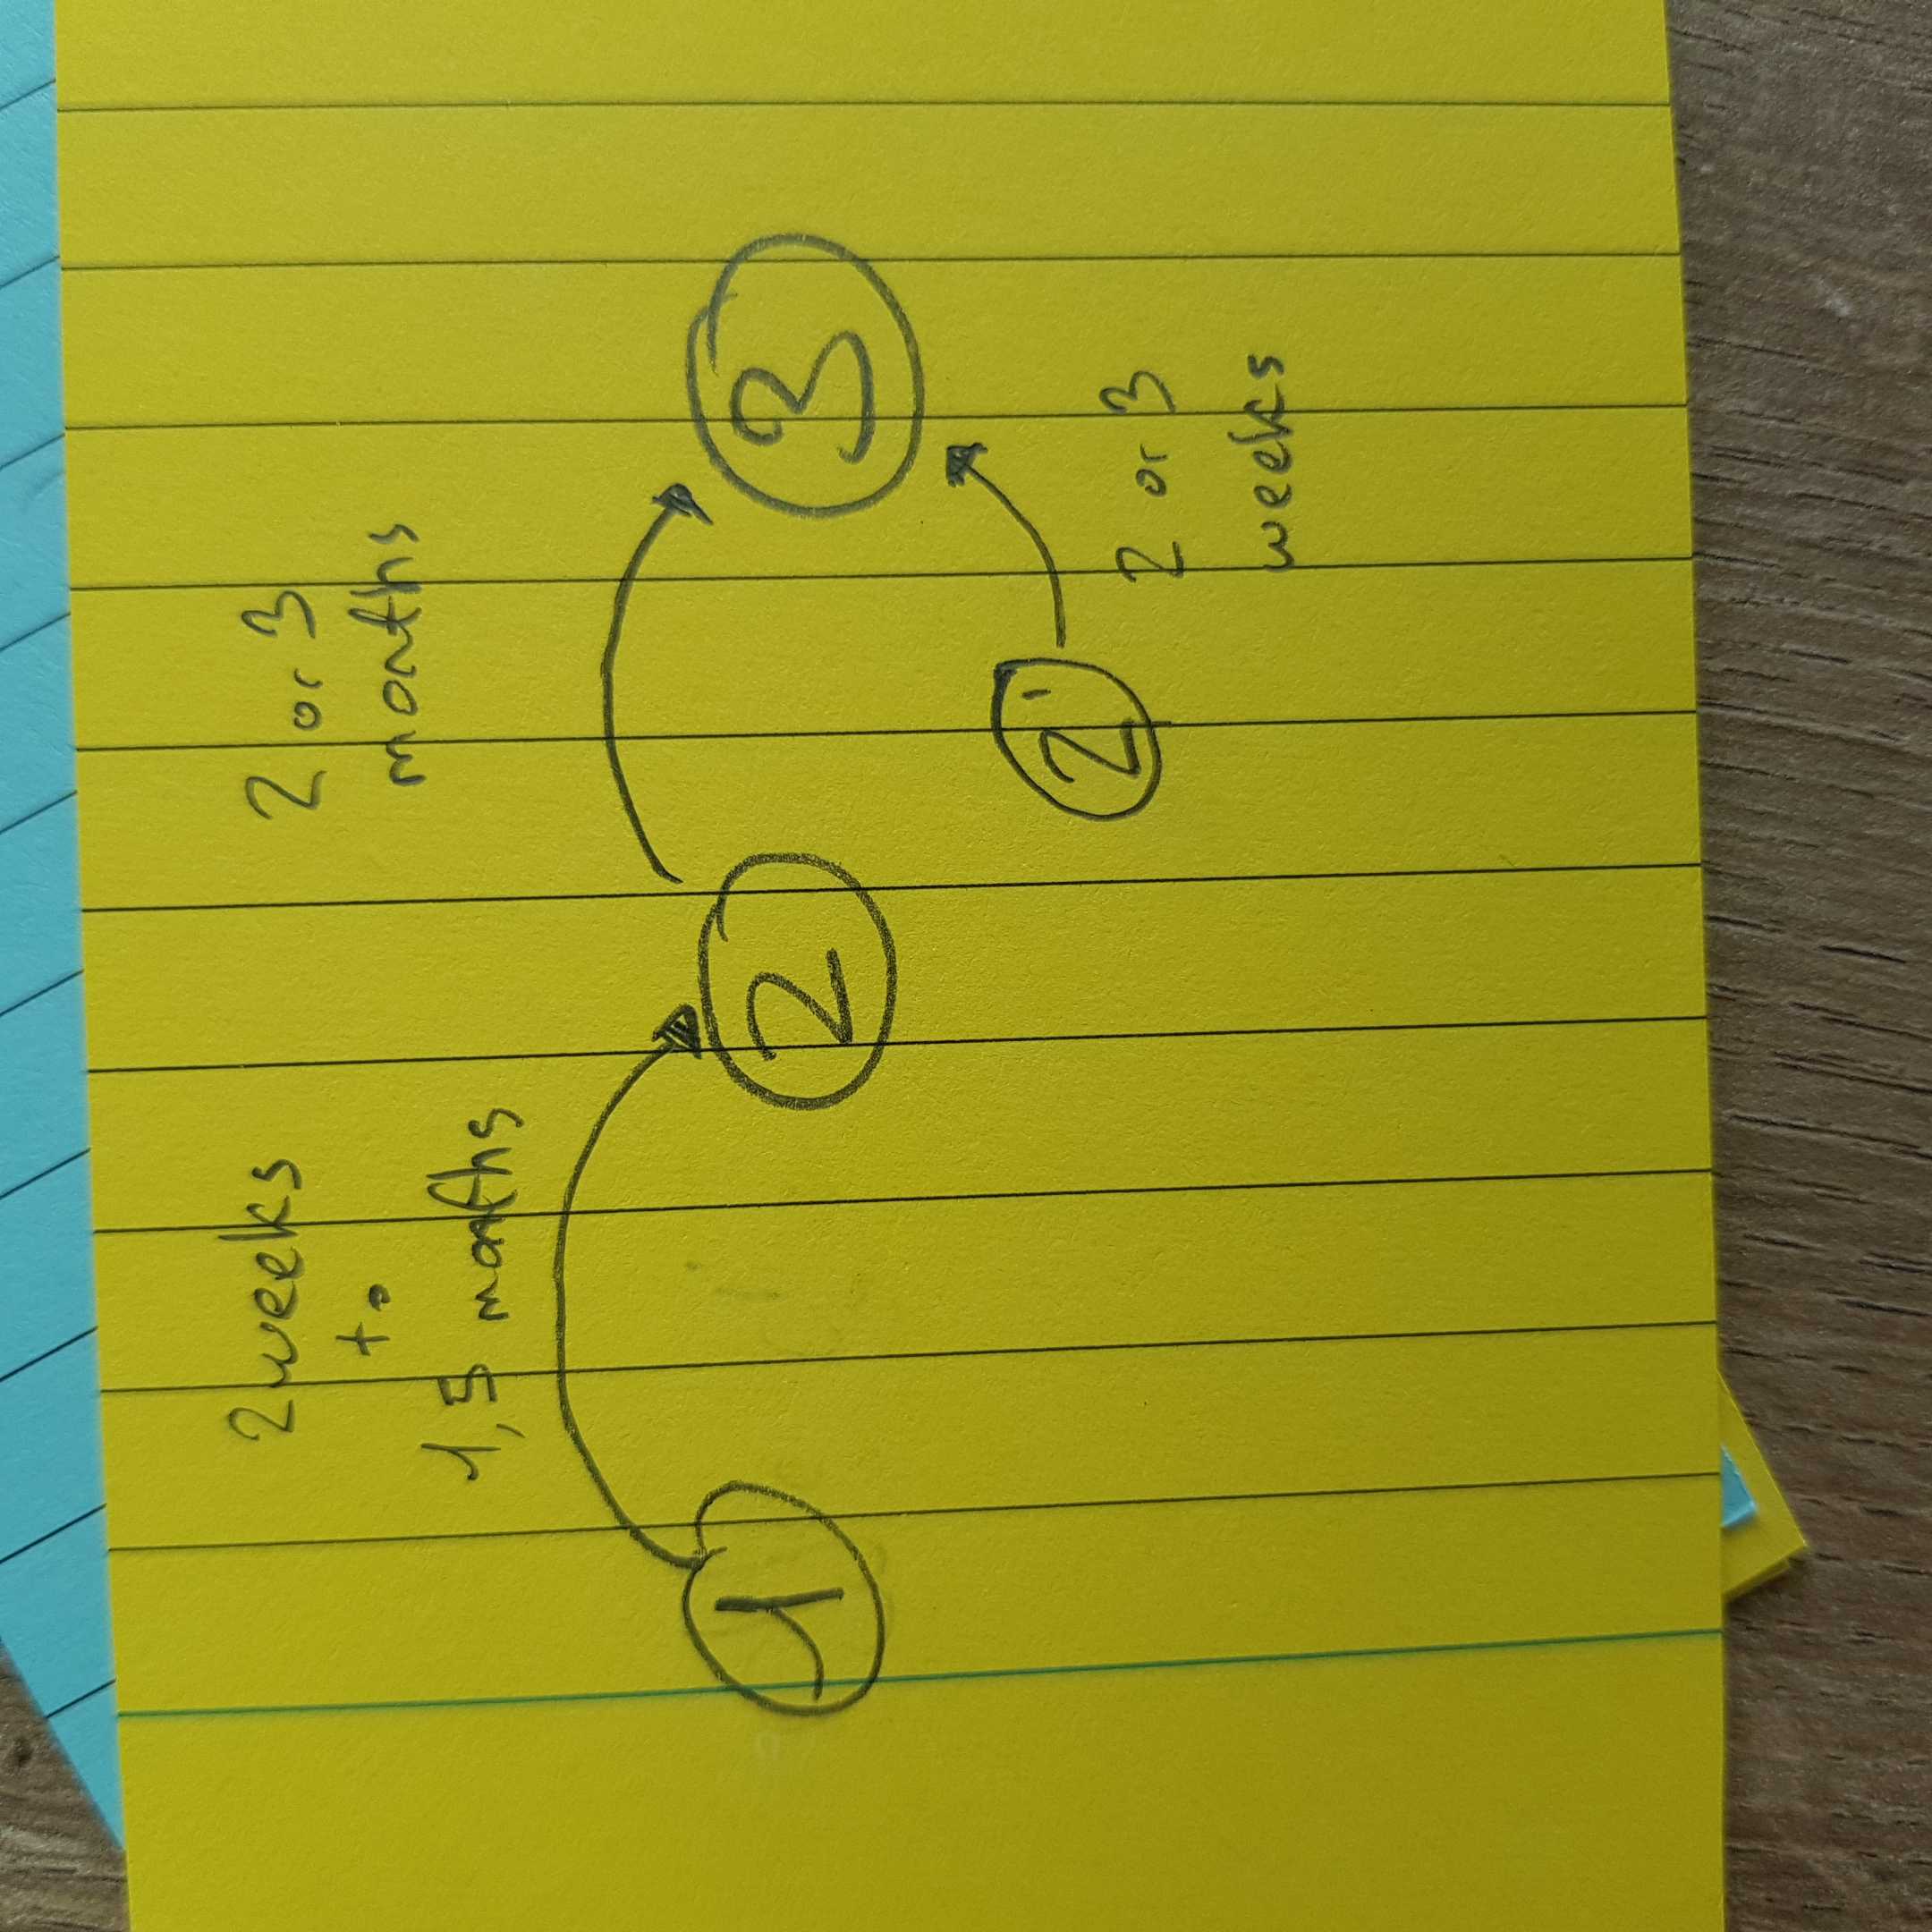 2 weeks
to
1,5 months
2 or 3
months
1
2
3
2'
2 or 3
weeks